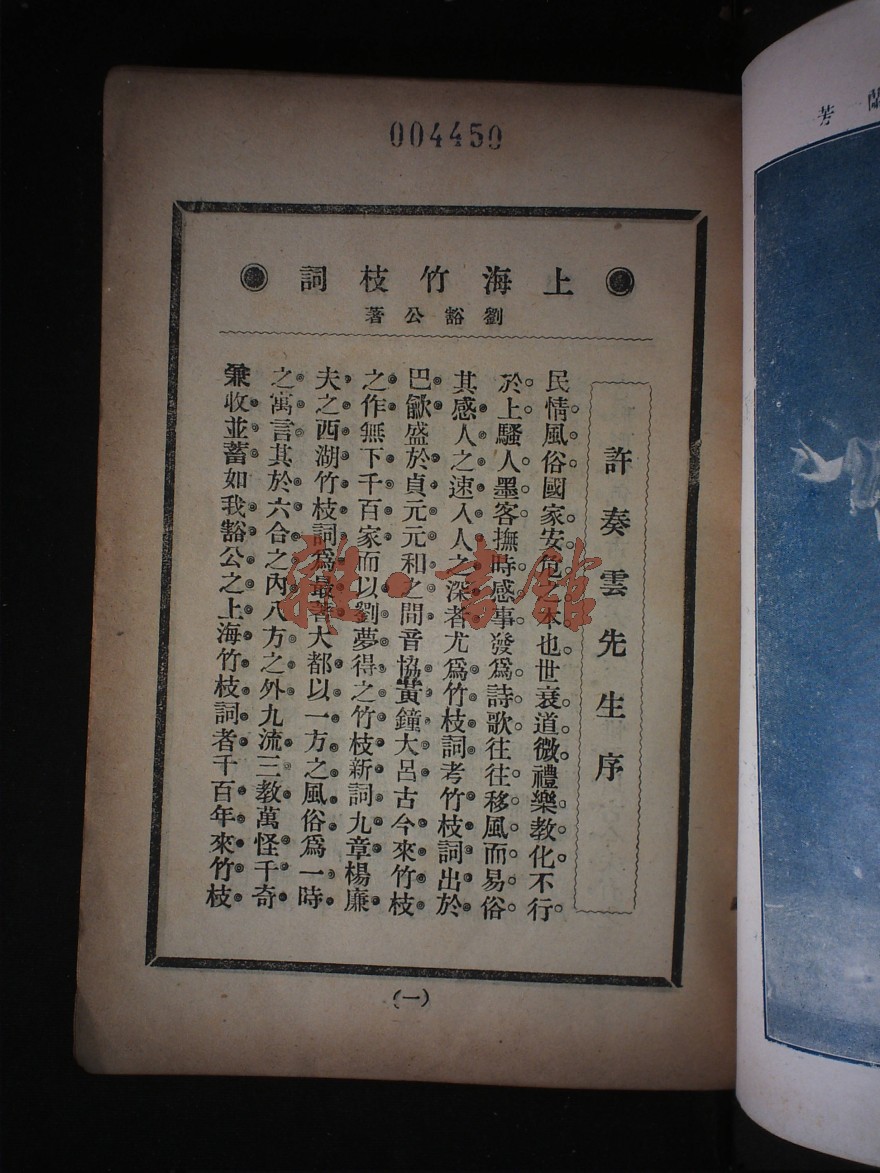 004450
上海竹枝詞
劉豁公著
許奏雲先生序
民情風俗國家安危之本也世衰道微禮樂教化不行
於上騷人墨客撫時感事發爲詩歌往往移風而易俗
其感人之速入人之深者尤爲竹枝詞考竹枝詞出於
巴歈盛於貞元元和之間音協黃鐘大呂古今來竹枝
之作無下千百家而以劉夢得之竹枝新詞九章楊廉
夫之西湖竹枝詞爲最著大都以一方之風俗爲一時
之寓言其於六合之內八方之外九流三教萬怪千奇
兼收並蓄如我豁公之上海竹枝詞者千百年來竹枝
(一)
雜·書館
蘭芳